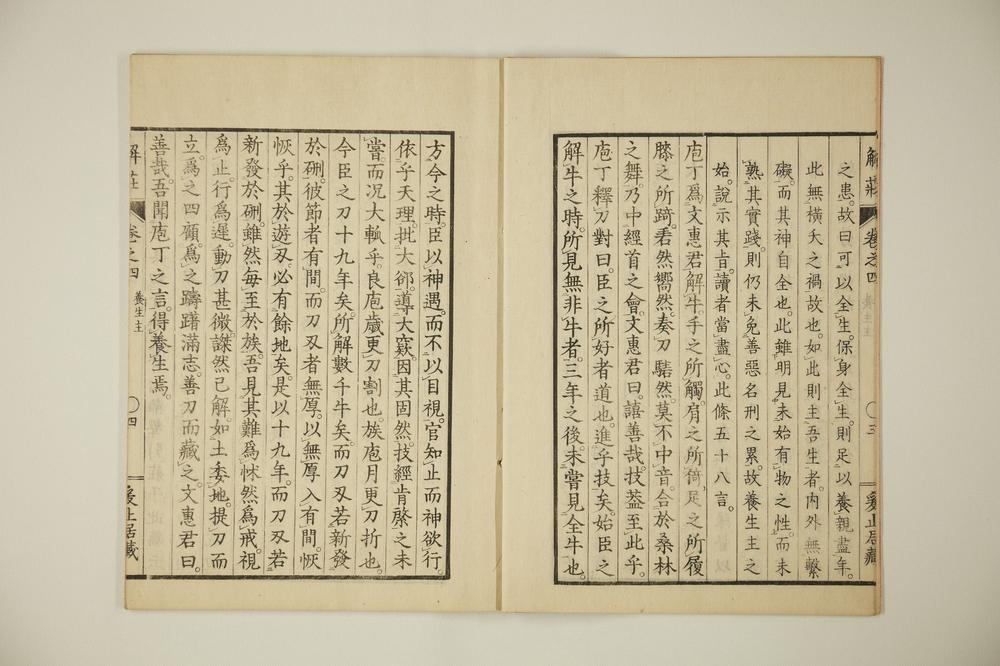 解莊 卷之四 養生主 〇三 爰止居藏
之患。故曰可以全生。保身全生。則足以養親盡年。
此無橫夭之禍故也。如此則主吾生者。内外無繫
礙。而其神自全也。此雖明見未始有物之性。而未
熟其實踐。則仍未免善惡名刑之累。故養生主之
始。說示其旨。讀者當盡心。此條五十八言。
庖丁爲文惠君解牛。手之所觸。肩之所倚。足之所履
膝之所踦。砉然嚮然。奏刀騞然。莫不中音。合於桑林
之舞。乃中經首之會。文惠君曰。譆善哉。技葢至此乎。
庖丁釋刀對曰。臣之所好者道也。進乎技矣。始臣之
解牛之時。所見無非牛者。三年之後。未嘗見全牛也。
方今之時。臣以神遇。而不以目視。官知止而神欲行。
依乎天理。批大郤。導大窽。因其固然。技經肯綮之未
嘗。而况大軱乎。良庖歲更刀割也。族庖月更刀折也
今臣之刀十九年矣。所解數千牛矣。而刀刄若新發
於硎。彼節者有間。而刀刄者無厚。以無厚入有間。恢
恢乎。其於遊刄。必有餘地矣。是以十九年。而刀刄若
新發於硎。雖然每至於族。吾見其難爲。怵然爲戒。視
爲止。行爲遲。動刀甚微。謋然已解。如土委地。提刀而
立。爲之四顧。爲之躊躇滿志。善刀而藏之。文惠君曰。
善哉。吾聞庖丁之言。得養生焉。
解莊 卷之四 養生主 〇四 爰止居藏